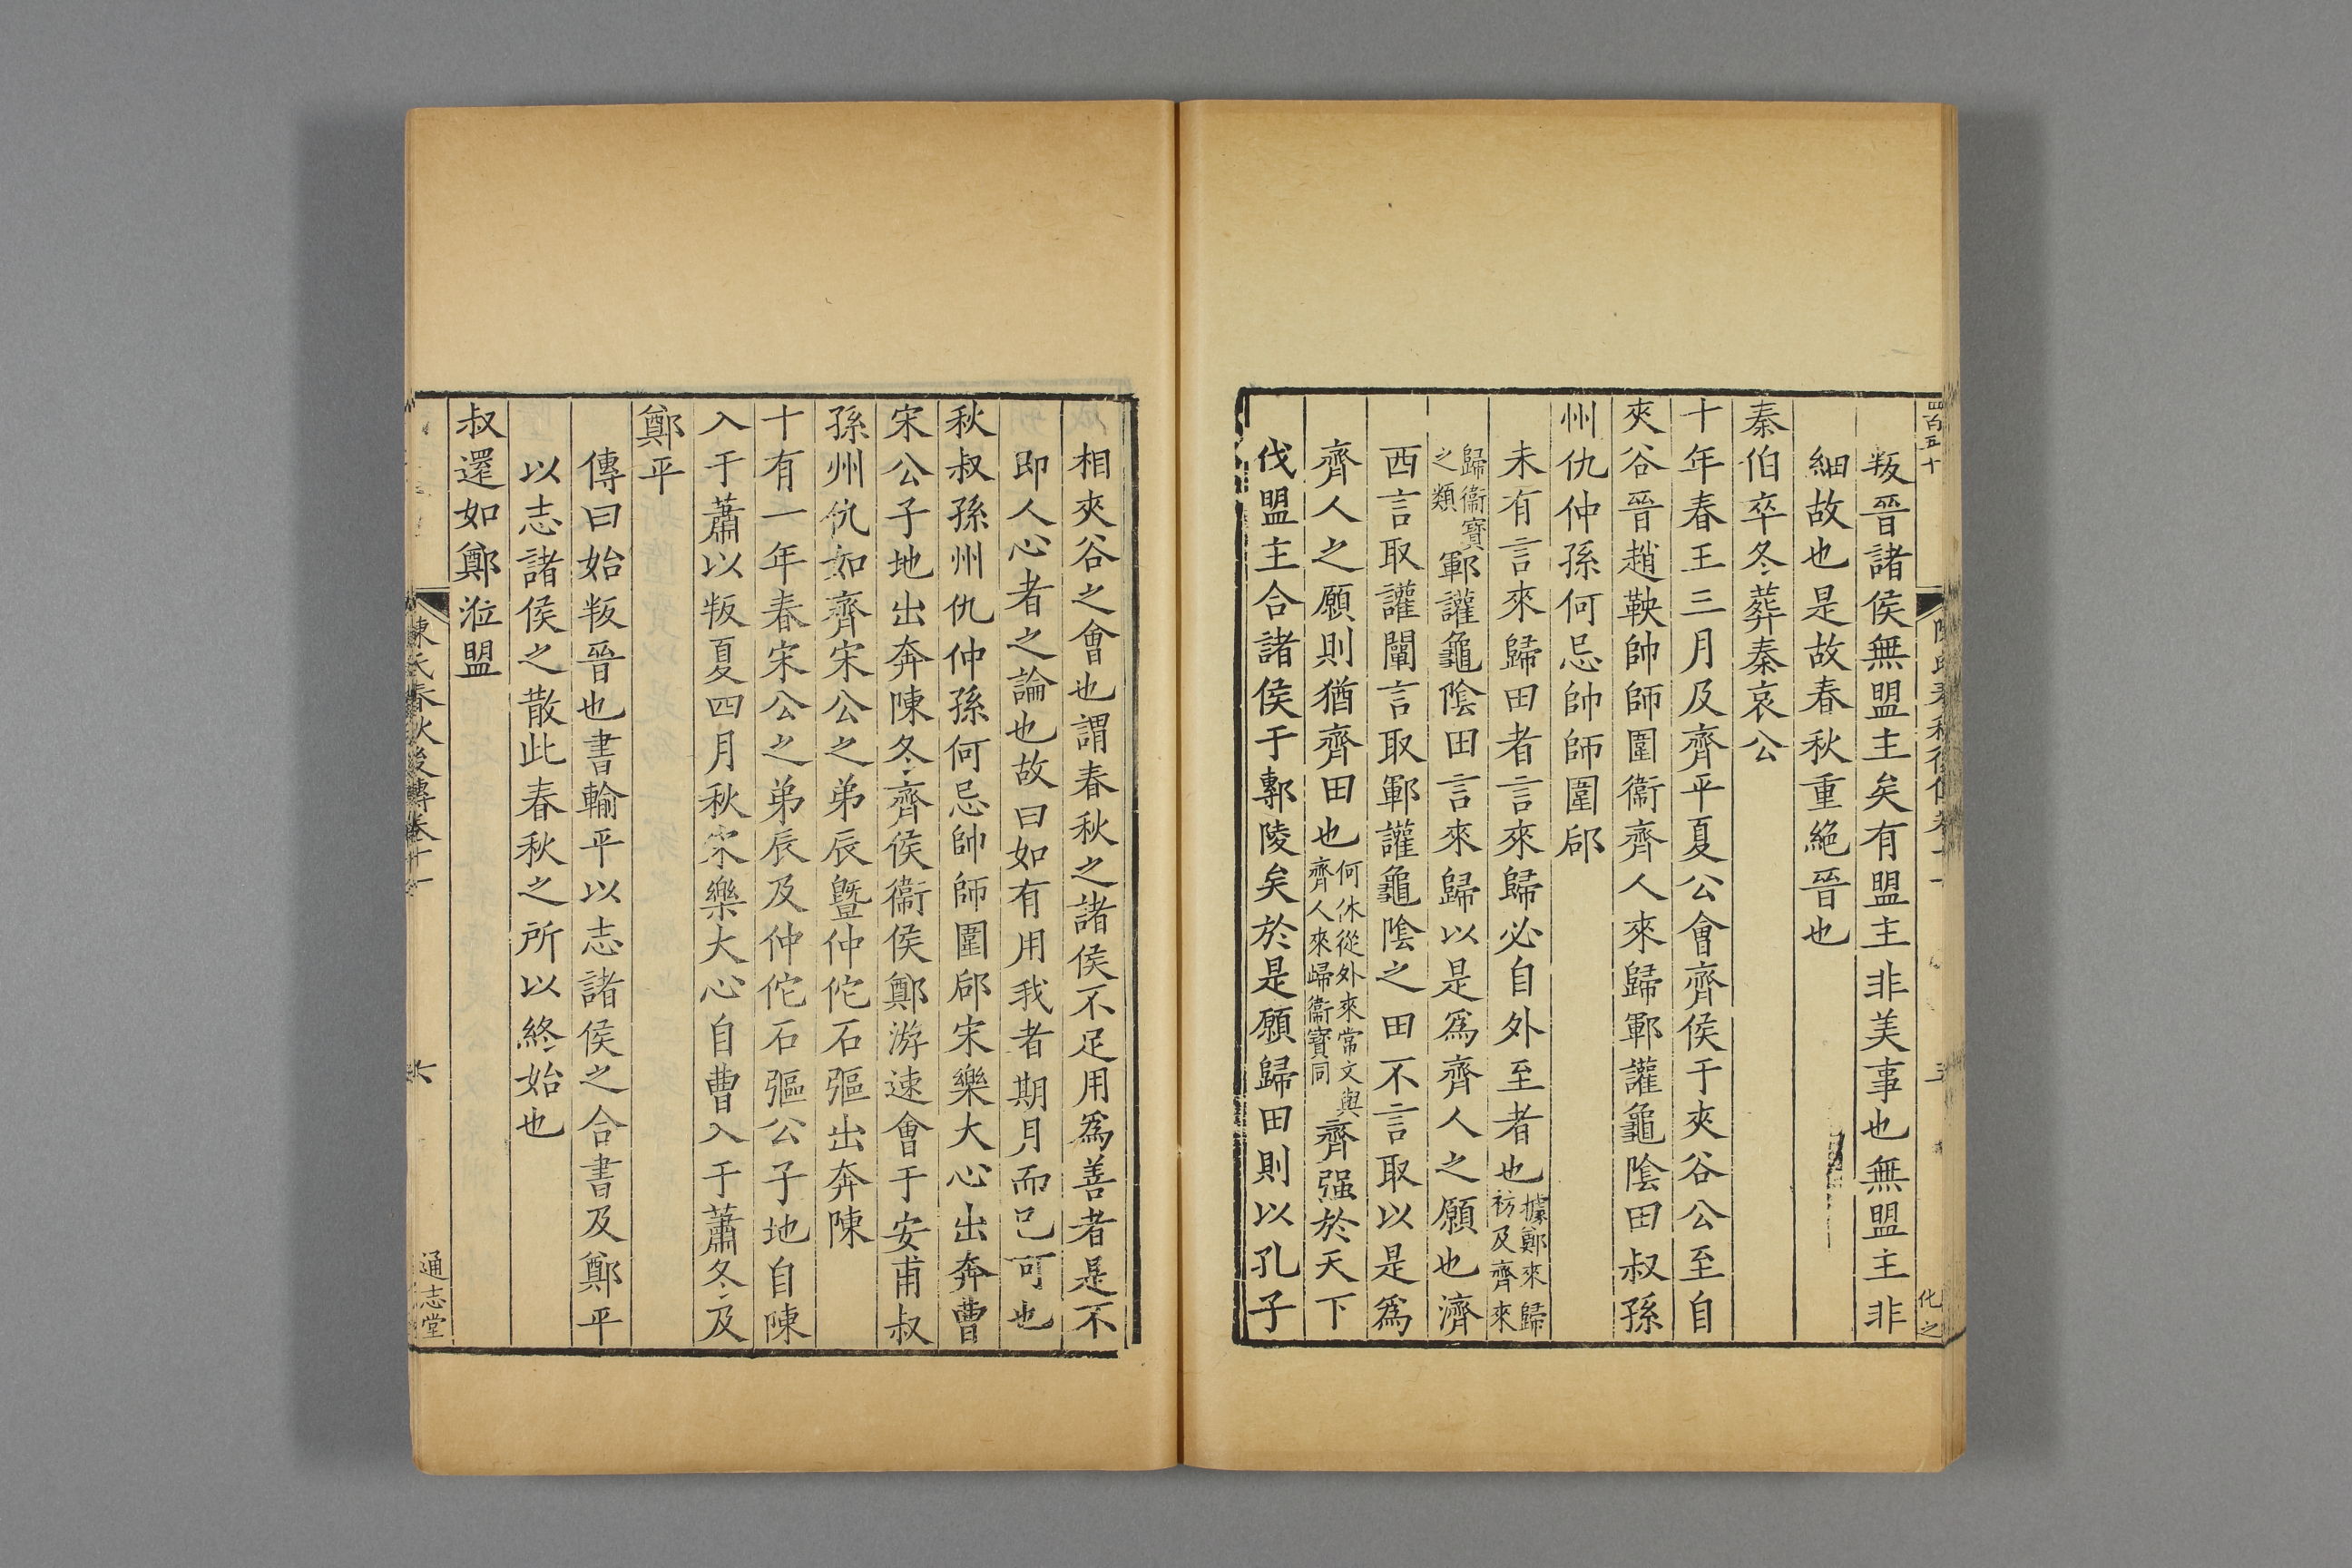 四百五十
化之
叛晉諸侯無盟主矣有盟主非美事也無盟主非
細故也是故春秋重絕晉也
秦伯卒冬葬秦哀公
十年春王三月及齊平夏公會齊侯于夾谷公至自
夾谷晉趙鞅帥師圍衞齊人來歸鄆讙龜陰田叔孫
州仇仲孫何忌帥師圍郈
未有言來歸田者言來歸必自外至者也據鄭來歸祊及齊來
歸衞寶之類鄆讙龜陰田言來歸以是爲齊人之願也濟
西言取讙闡言取鄆讙龜陰之田不言取以是爲
齊人之願則猶齊田也何休從外來常文與齊人來歸衞寶同齊强於天下
伐盟主合諸侯于鄟陵矣於是願歸田則以孔子
相夾谷之會也謂春秋之諸侯不足用爲善者是不
即人心者之論也故曰如有用我者期月而已可也
秋叔孫州仇仲孫何忌帥師圍郈宋樂大心出奔曹
宋公子地出奔陳冬齊侯衞侯鄭游速會于安甫叔
孫州仇如齊宋公之弟辰暨仲佗石彄出奔陳
十有一年春宋公之弟辰及仲佗石彄公子地自陳
入于蕭以叛夏四月秋宋樂大心自曹入于蕭冬及
鄭平
傳曰始叛晉也書輸平以志諸侯之合書及鄭平
以志諸侯之散此春秋之所以終始也
叔還如鄭涖盟
陳氏春秋後傳卷十一
六
通志堂